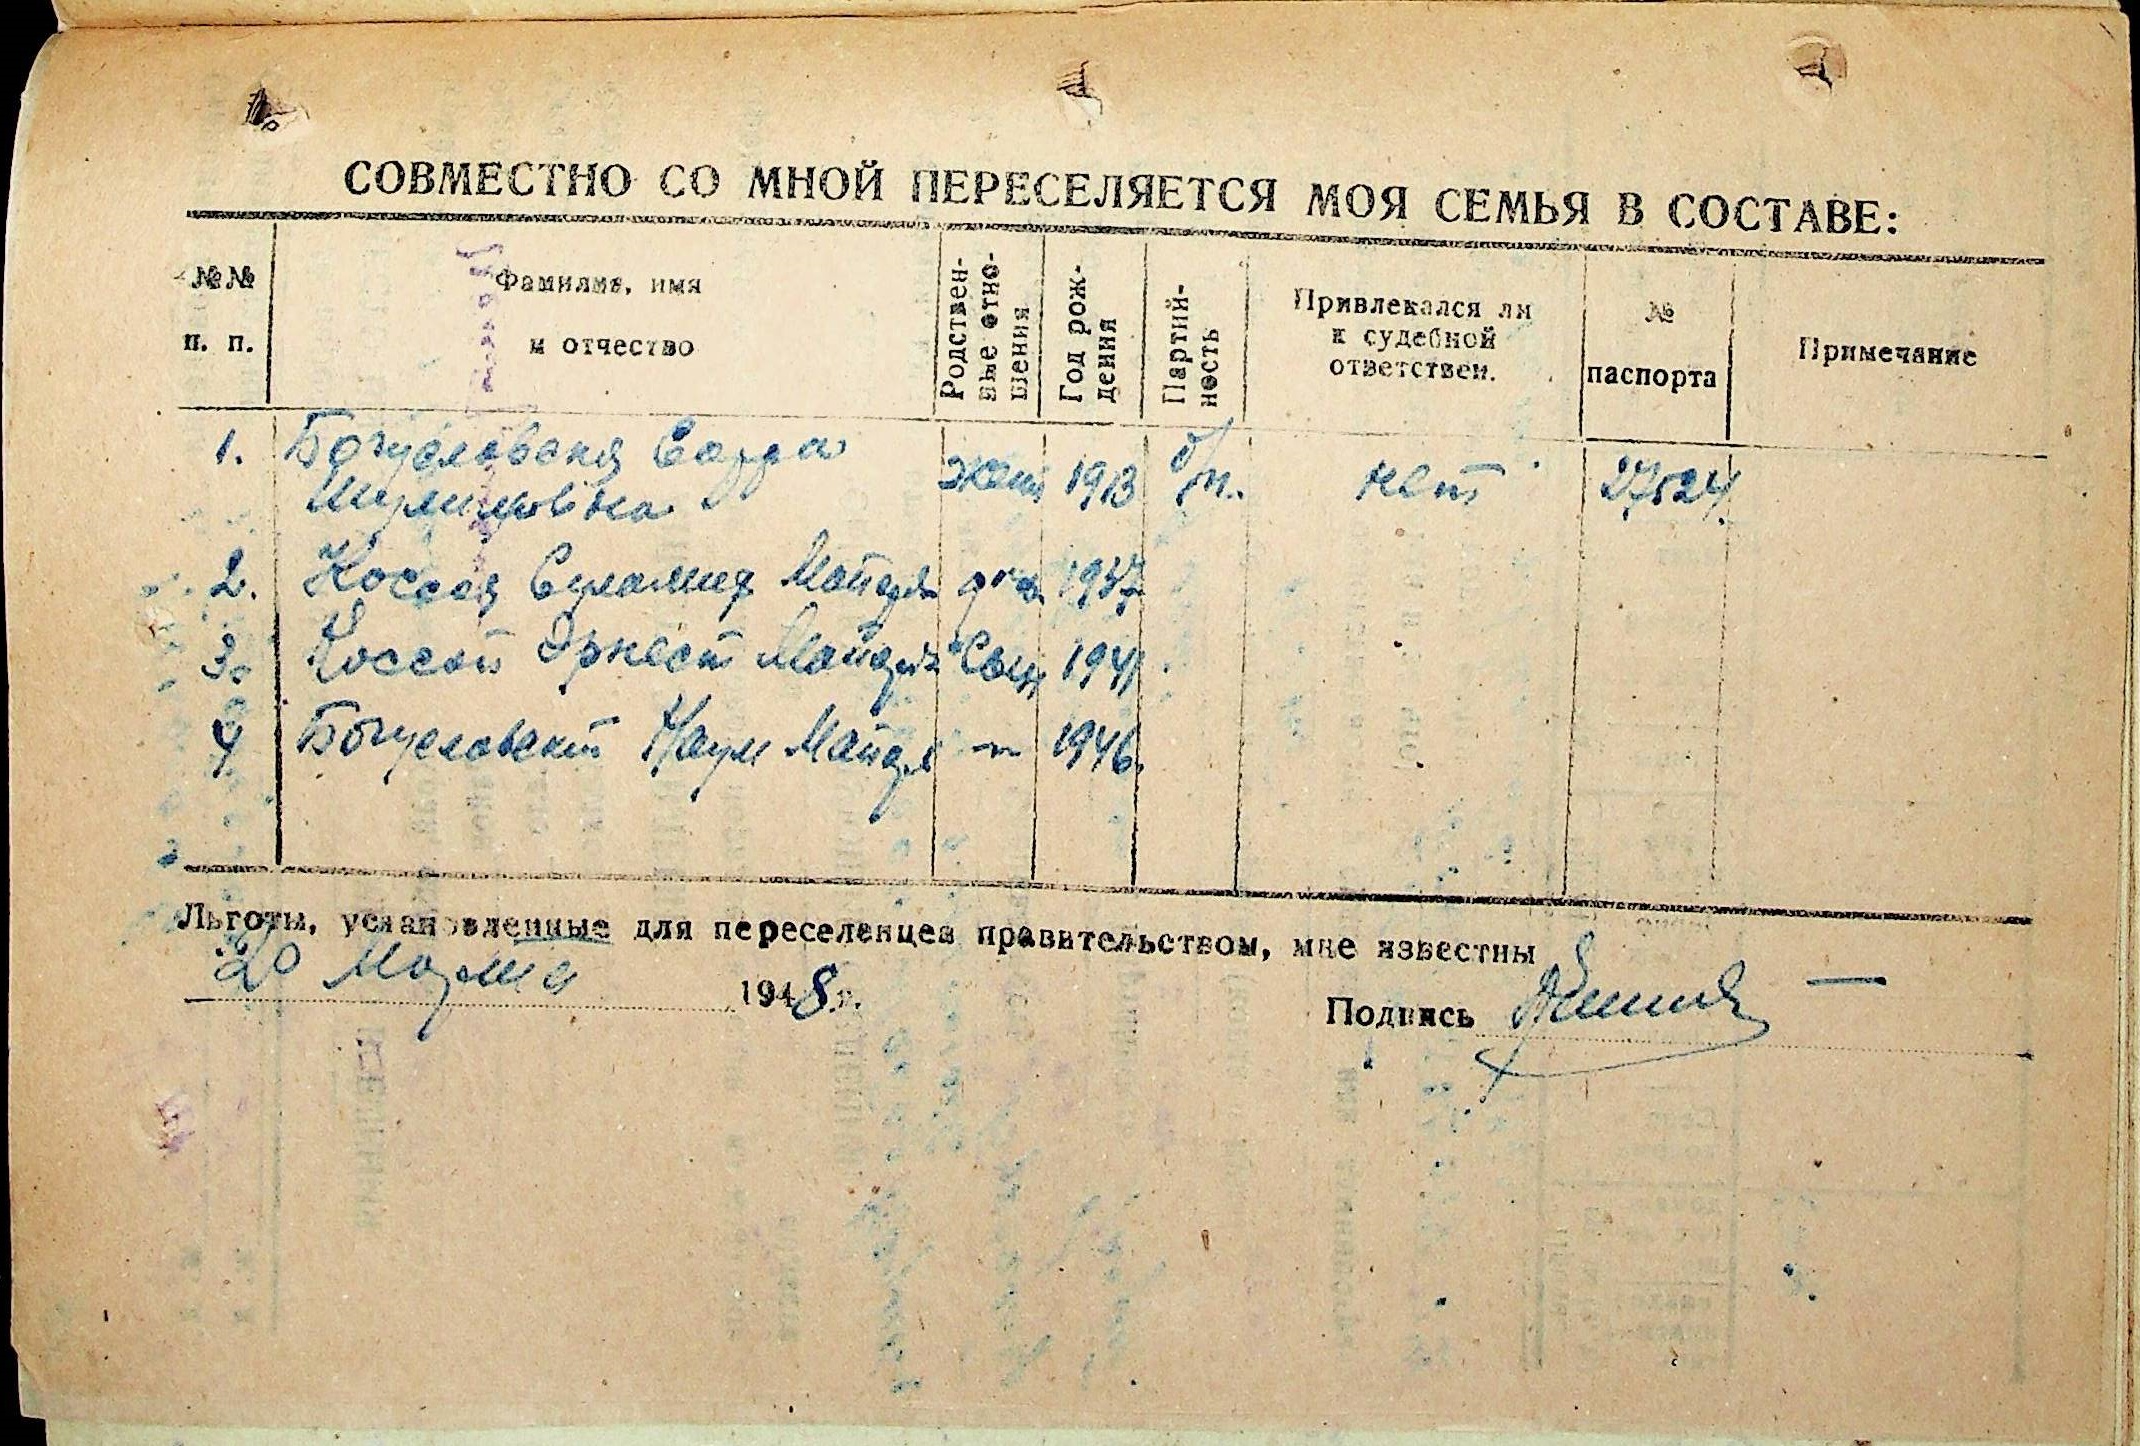 СОВМЕСТНО СО МНОЙ ПЕРЕСЕЛЯЕТСЯ МОЯ СЕМЬЯ В СОСТАВЕ:
№№ п. п. Фамилия, имя и отчество Родствен-ные отно-шения Год рож-дения Партий-ность Привлекался ли к судебной ответствен. № паспорта Примечание
1. Богуславская Сарра
Шулимовна жена 1913 б/п. нет 27524
2. Коссая Суламия дочь 1937
3. Коссой Эрнест сын 1941
4 Богуславский Наум 1946.
Льготы, установленные для переселенцев правительством, мне известны
20 Марта 1948 г.
Подпись